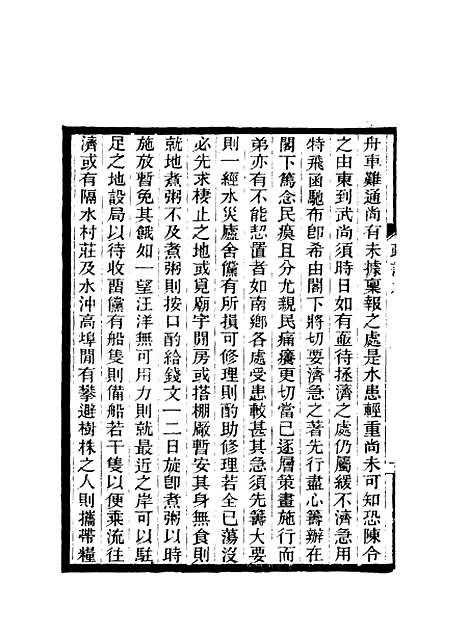 舟車難通尚有未據稟報之處是水患輕重尚未可知恐陳令
之由東到武尚須時日如有亟待拯濟之處仍屬緩不濟急用
特飛函馳布卽希由閣下將切要濟急之著先行盡心籌辦在
閣下篤念民瘼且分尤親民痛癢更切當已逐層策畫施行而
弟亦有不能恝置者如南鄉各處受患較甚其急須先籌大要
則一經水災廬舍儻有所損可修理則酌助修理若全已蕩沒
必先求棲止之地或覓廟宇閒房或搭棚廠暫安其身無食則
就地煮粥不及煮粥則按口酌給錢文一二日旋卽煮粥以時
施放暫免其餓如一望汪洋無可用力則就最近之岸可以駐
足之地設局以待收畱儻有船隻則備船若干隻以便乘流往
濟或有隔水村莊及水沖高埠閒有攀避樹株之人則攜帶糧